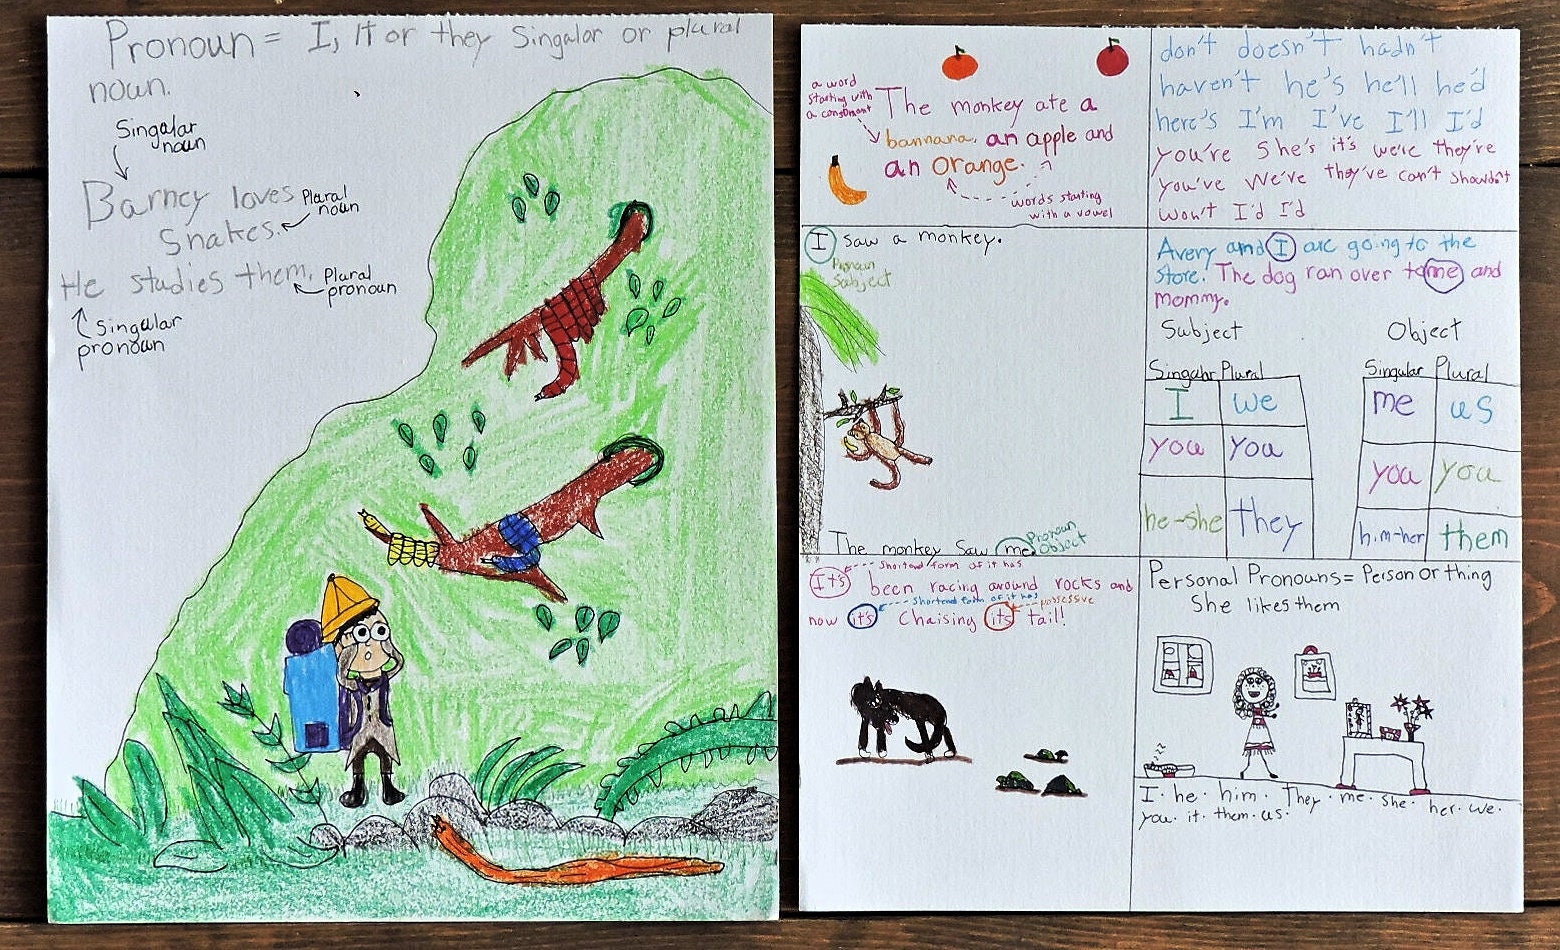 Pronoun = I, It or they Singalar or plural
noun.
Singalar
noun
Barney loves
Snakes.
Plural
noun
He studies them.
Plural
pronoun
Singular
pronoun
a word
starting with
a consonant
The monkey ate a
bannana, an apple and
an orange.
words starting
with a vowel
don't doesn't hadn't
haven't he's he'll he'd
here's I'm I've I'll I'd
you're she's it's we're they're
you've We've they've can't shouldn't
won't I'd I'd
I saw a monkey.
Pronoun
Subject
The monkey saw me.
Pronoun
Object
Avery and I are going to the
store. The dog ran over to me and
mommy.
Subject
Singular Plural
I we
you you
he-she they
Object
Singular Plural
me us
you you
him-her them
shortend form of it has
It's been racing around rocks and
shortend form of it has
possessive
now it's chaising its tail!
Personal Pronouns = Person or thing
She likes them
I · he · him · They · me · she · her · we ·
you · it · them · us ·